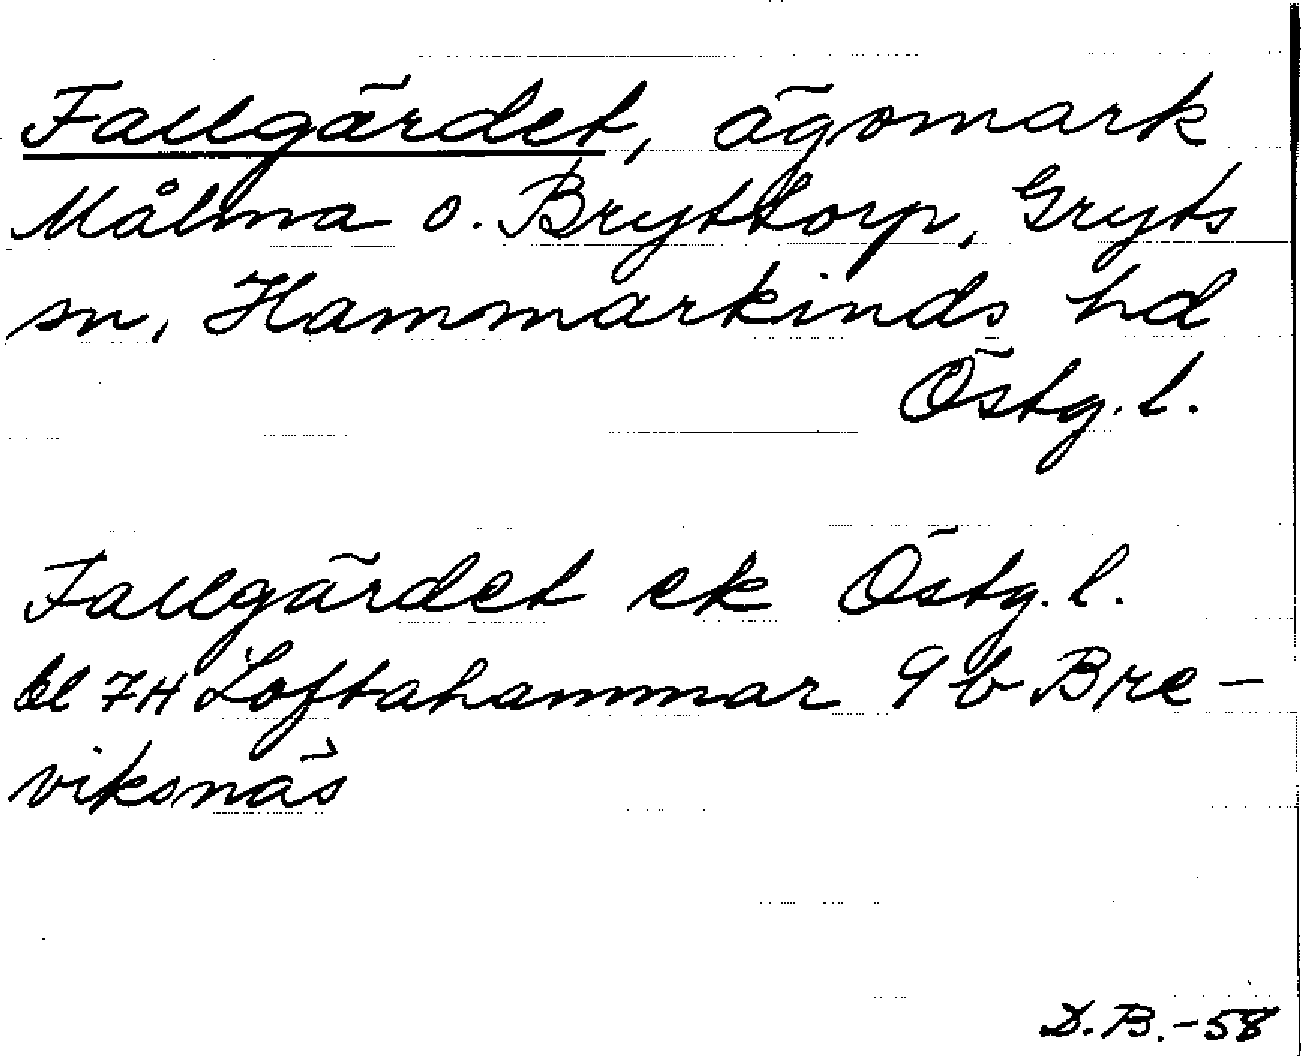 Fallgärdet, ägomark
Målma o. Bryttorp, Gryts
sn, Hammarkinds hd
Östg. l.
Fallgärdet ek Östg. l.
bl 7H Loftahammar 9b Bre-
viksnäs
D.B.-58